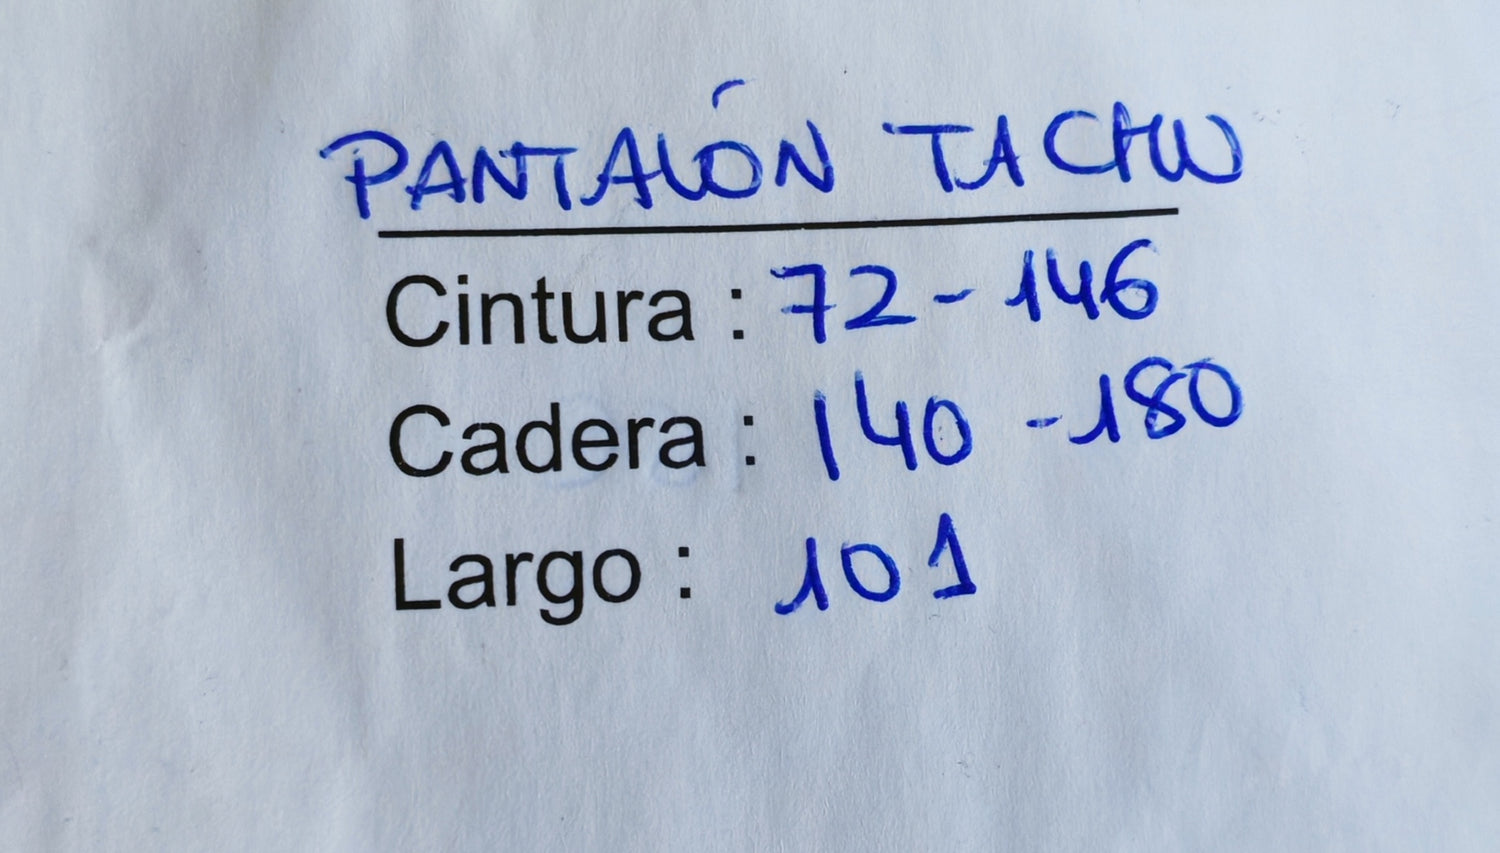 PANTALÓN TACHU
Cintura : 72 - 146
Cadera : 140 - 180
Largo : 101